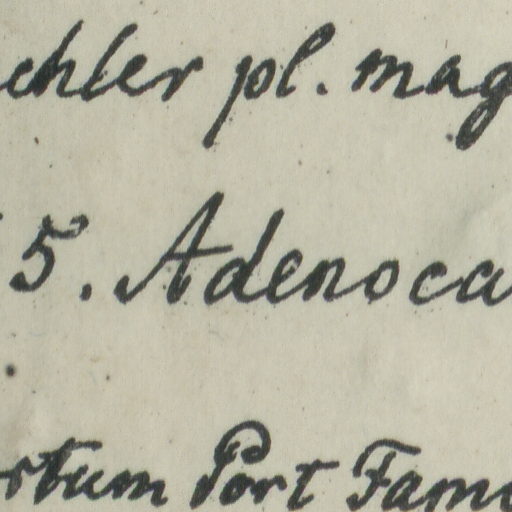 chler pl. mag
5. Adenoca
rtum Port Famo